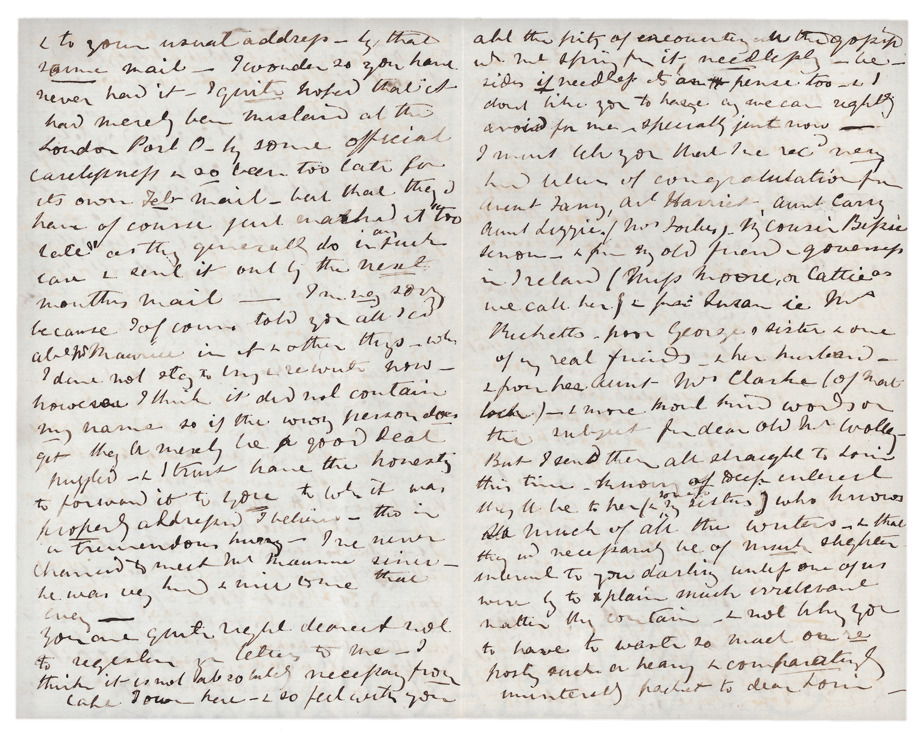 & to your usual address – by that
same mail – I wonder so you have
never had it – I quite hoped that it
had merely been mislaid at the
London Post O – by some official
carelessness & so been too late for
its own Feb mail – but that they'd
have of course just marked it "too
late" as they generally do in such
an
case & sent it out by the next
months mail — I'm very sorry
because I of course told you all I'd
Maurice in it & other things – wh
I dare not stay to try & rewrite now –
however I think it did not contain
my name so if the wrong person does
get they'll merely be a good deal
puzzled – & I trust have the honesty
to forward it to you to wh it was
properly addressed I believe – tho in
a tremendous hurry – I've never
chanced to meet Mr Maurice since –
he was very kind & nice to me that
eveg —
You are quite right dearest not
to register yr letters to me – I
think it is not absolutely necessary from
Cape Town here – & so feel with you
all the pity of encountering the gossip
needlessly – be-
sides if needless its expense too – & I
dont like you to have any we can rightly
avoid for me – specially just now —
I must tell you that I've recd very
kind letters of congratulation fm
aunt Fanny, at Harriet aunt Carry
aunt Lizzie, (Mrs Forbes), my cousin Bessie
– & fm my old friend & governess
in Ireland (Miss Moore, or Cattie as
we call her) & fm Susan ie Mrs
Ricketts – poor George's sister & one
of my real friends – & her husband –
& from her aunt – Mrs Clarke (of Mat
lock) – & more most kind words on
the subject fm dear old Mr Wolley
But I send them all straight to Loui
this time – knowing of deep interest
they'll be to her (& my sisters) who knows
so much of all the writers – & that
they wd necessarily be of much slighter
interest to you darling unless one of us
were by to explain much irrelevant
matter they contain – & not like you
to have to waste so much on re
posting such a heavy & comparatively
uninteresting packet to dear Loui –